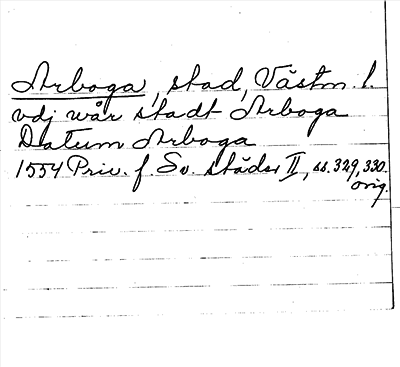 Arboga, stad, Västm. l.
vdj wår stadt Arboga
Datum Arboga
1554 Priv. f. Sv. städer II, ss. 329, 330.
orig.